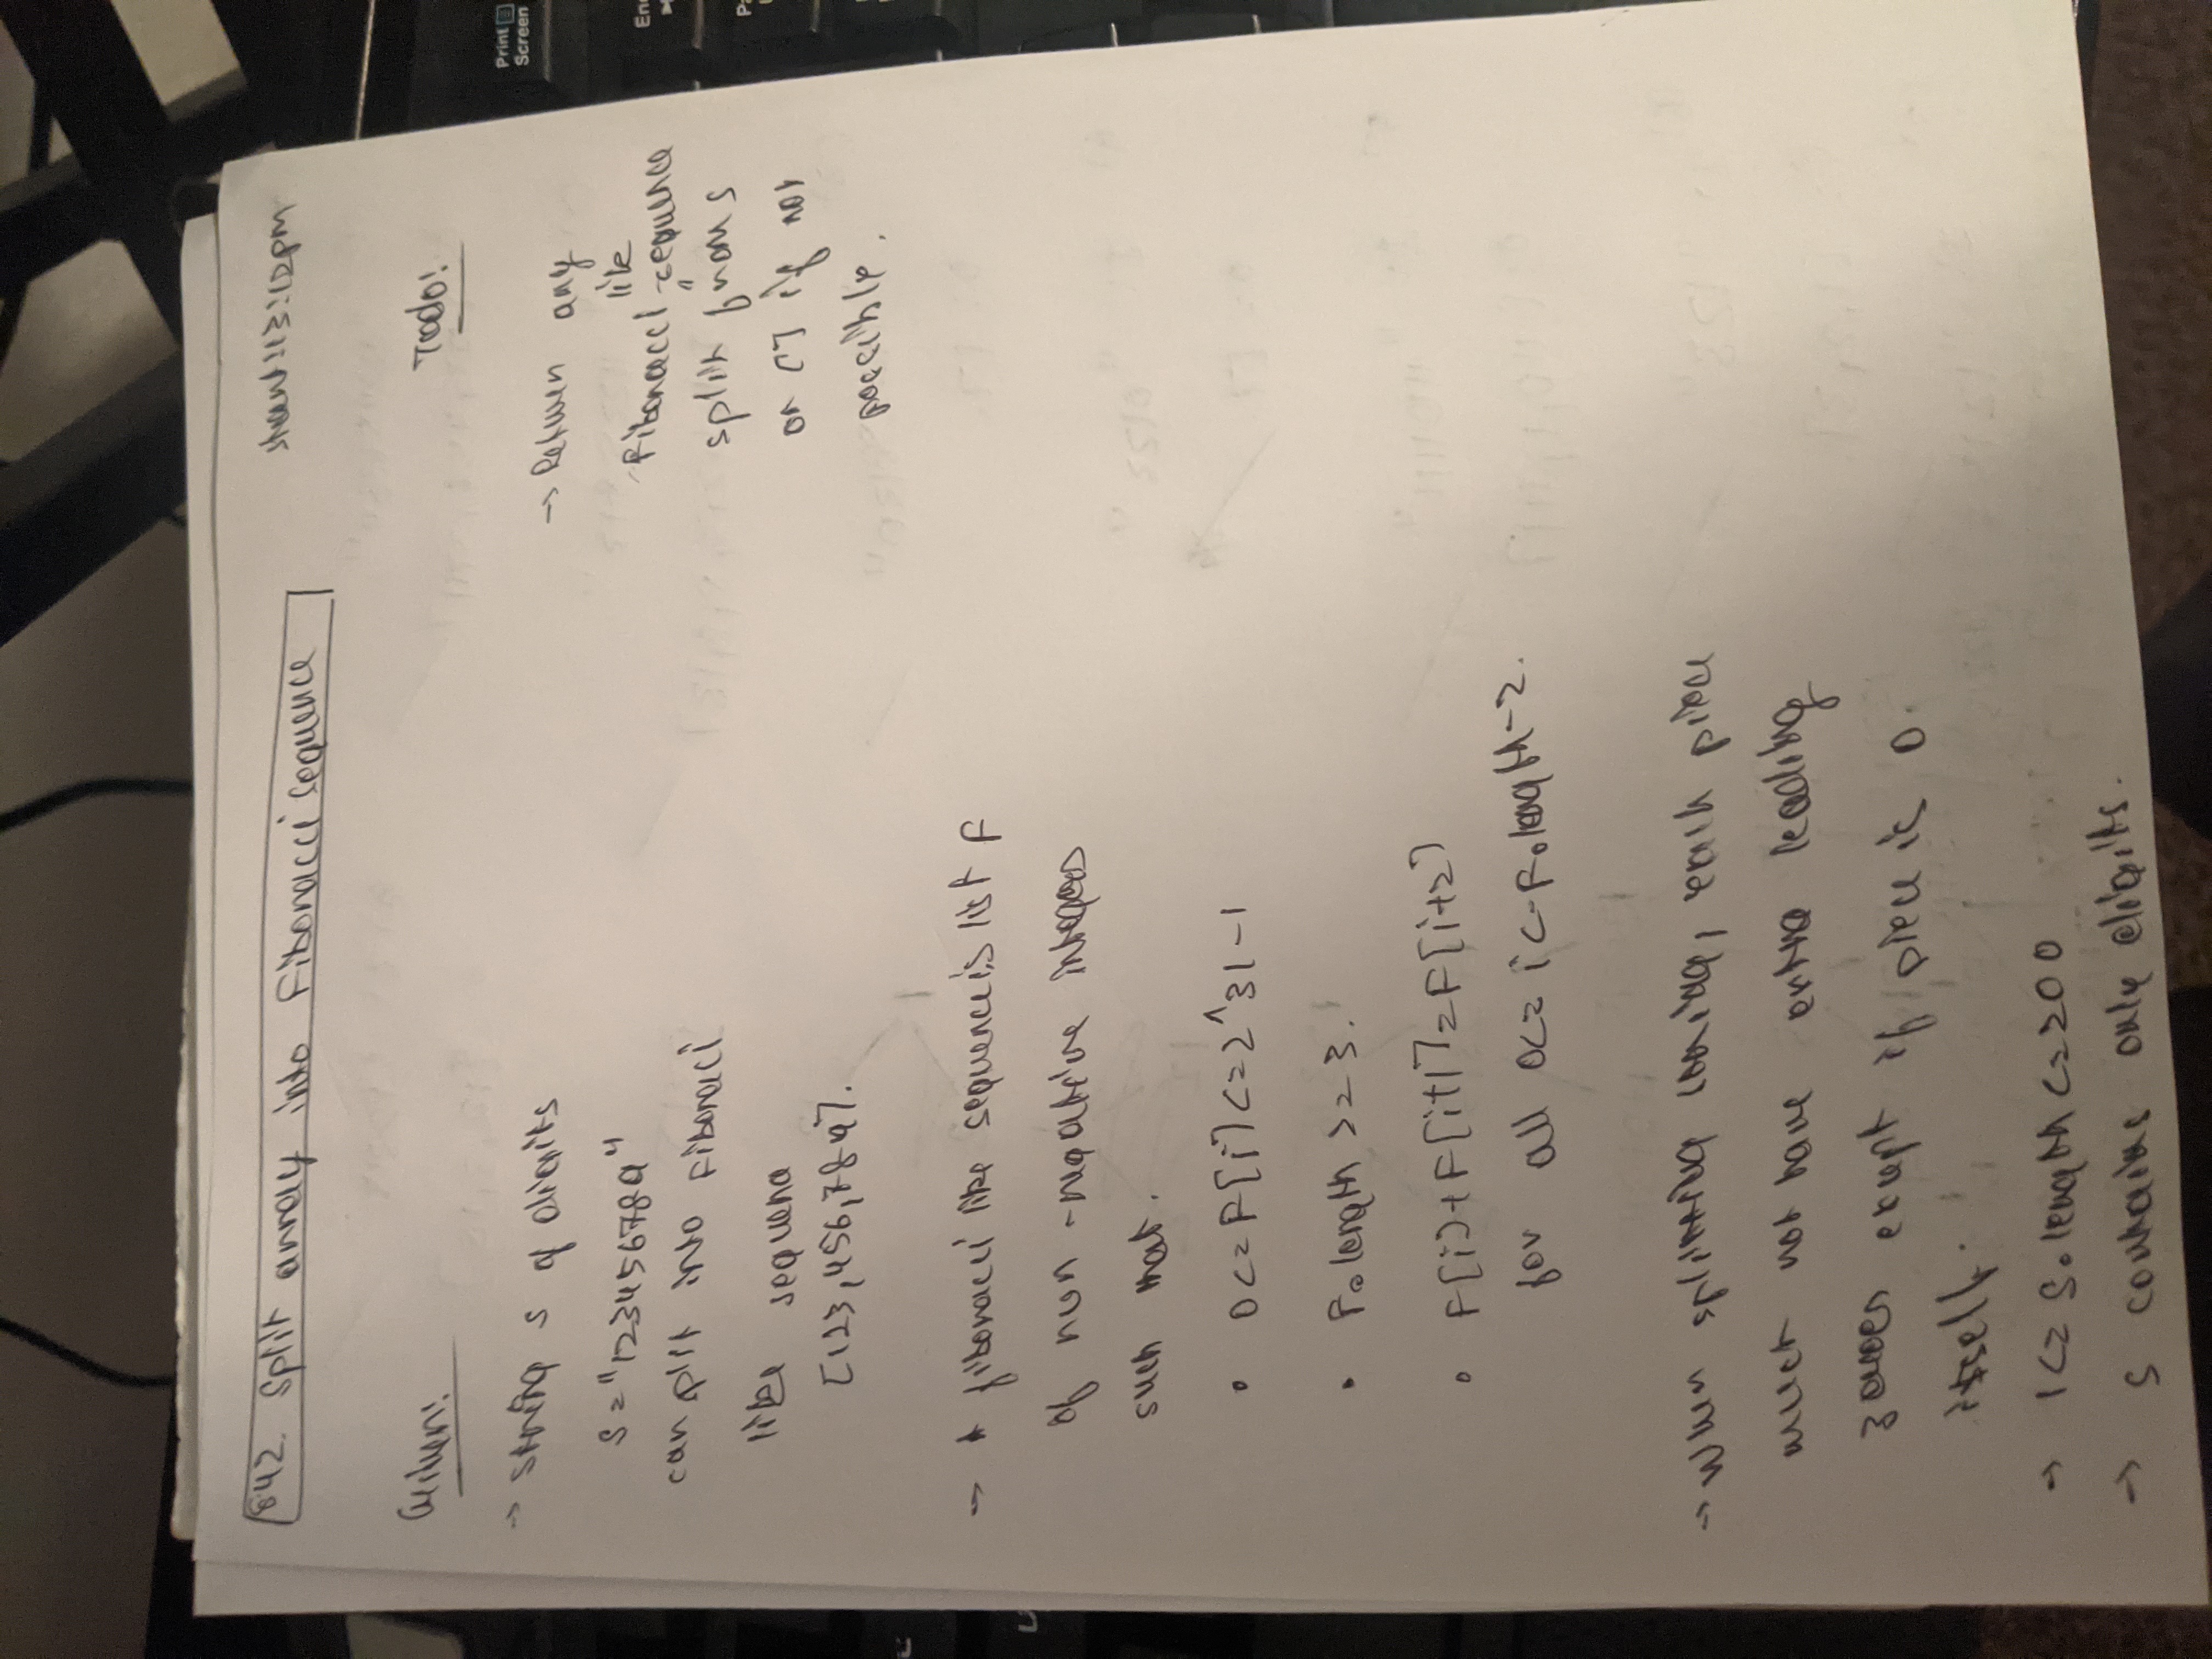 842. Split array into Fibonacci sequence
start: 13:12pm
Given:
→ string s of digits
S = "123456789"
can plit into Fibonacci
like sequence
[123,456,789].
→ A fibonacci like sequence is list F
of non-negative integers
such that.
• 0<=F[i]<=2^31-1
• F.length >=3.
• F[i]+F[i+1]=F[i+2]
for all 0<= i <F.length-2.
→ When splitting string, each piece
must not have extra leading
zeroes except if piece is 0.
itself.
→ 1<= S.length <=200
→ S contains only digits.
Todo:
→ Return any
like
Fibonacci-sequence
split from S
or [] if not
possible.
Print
Screen